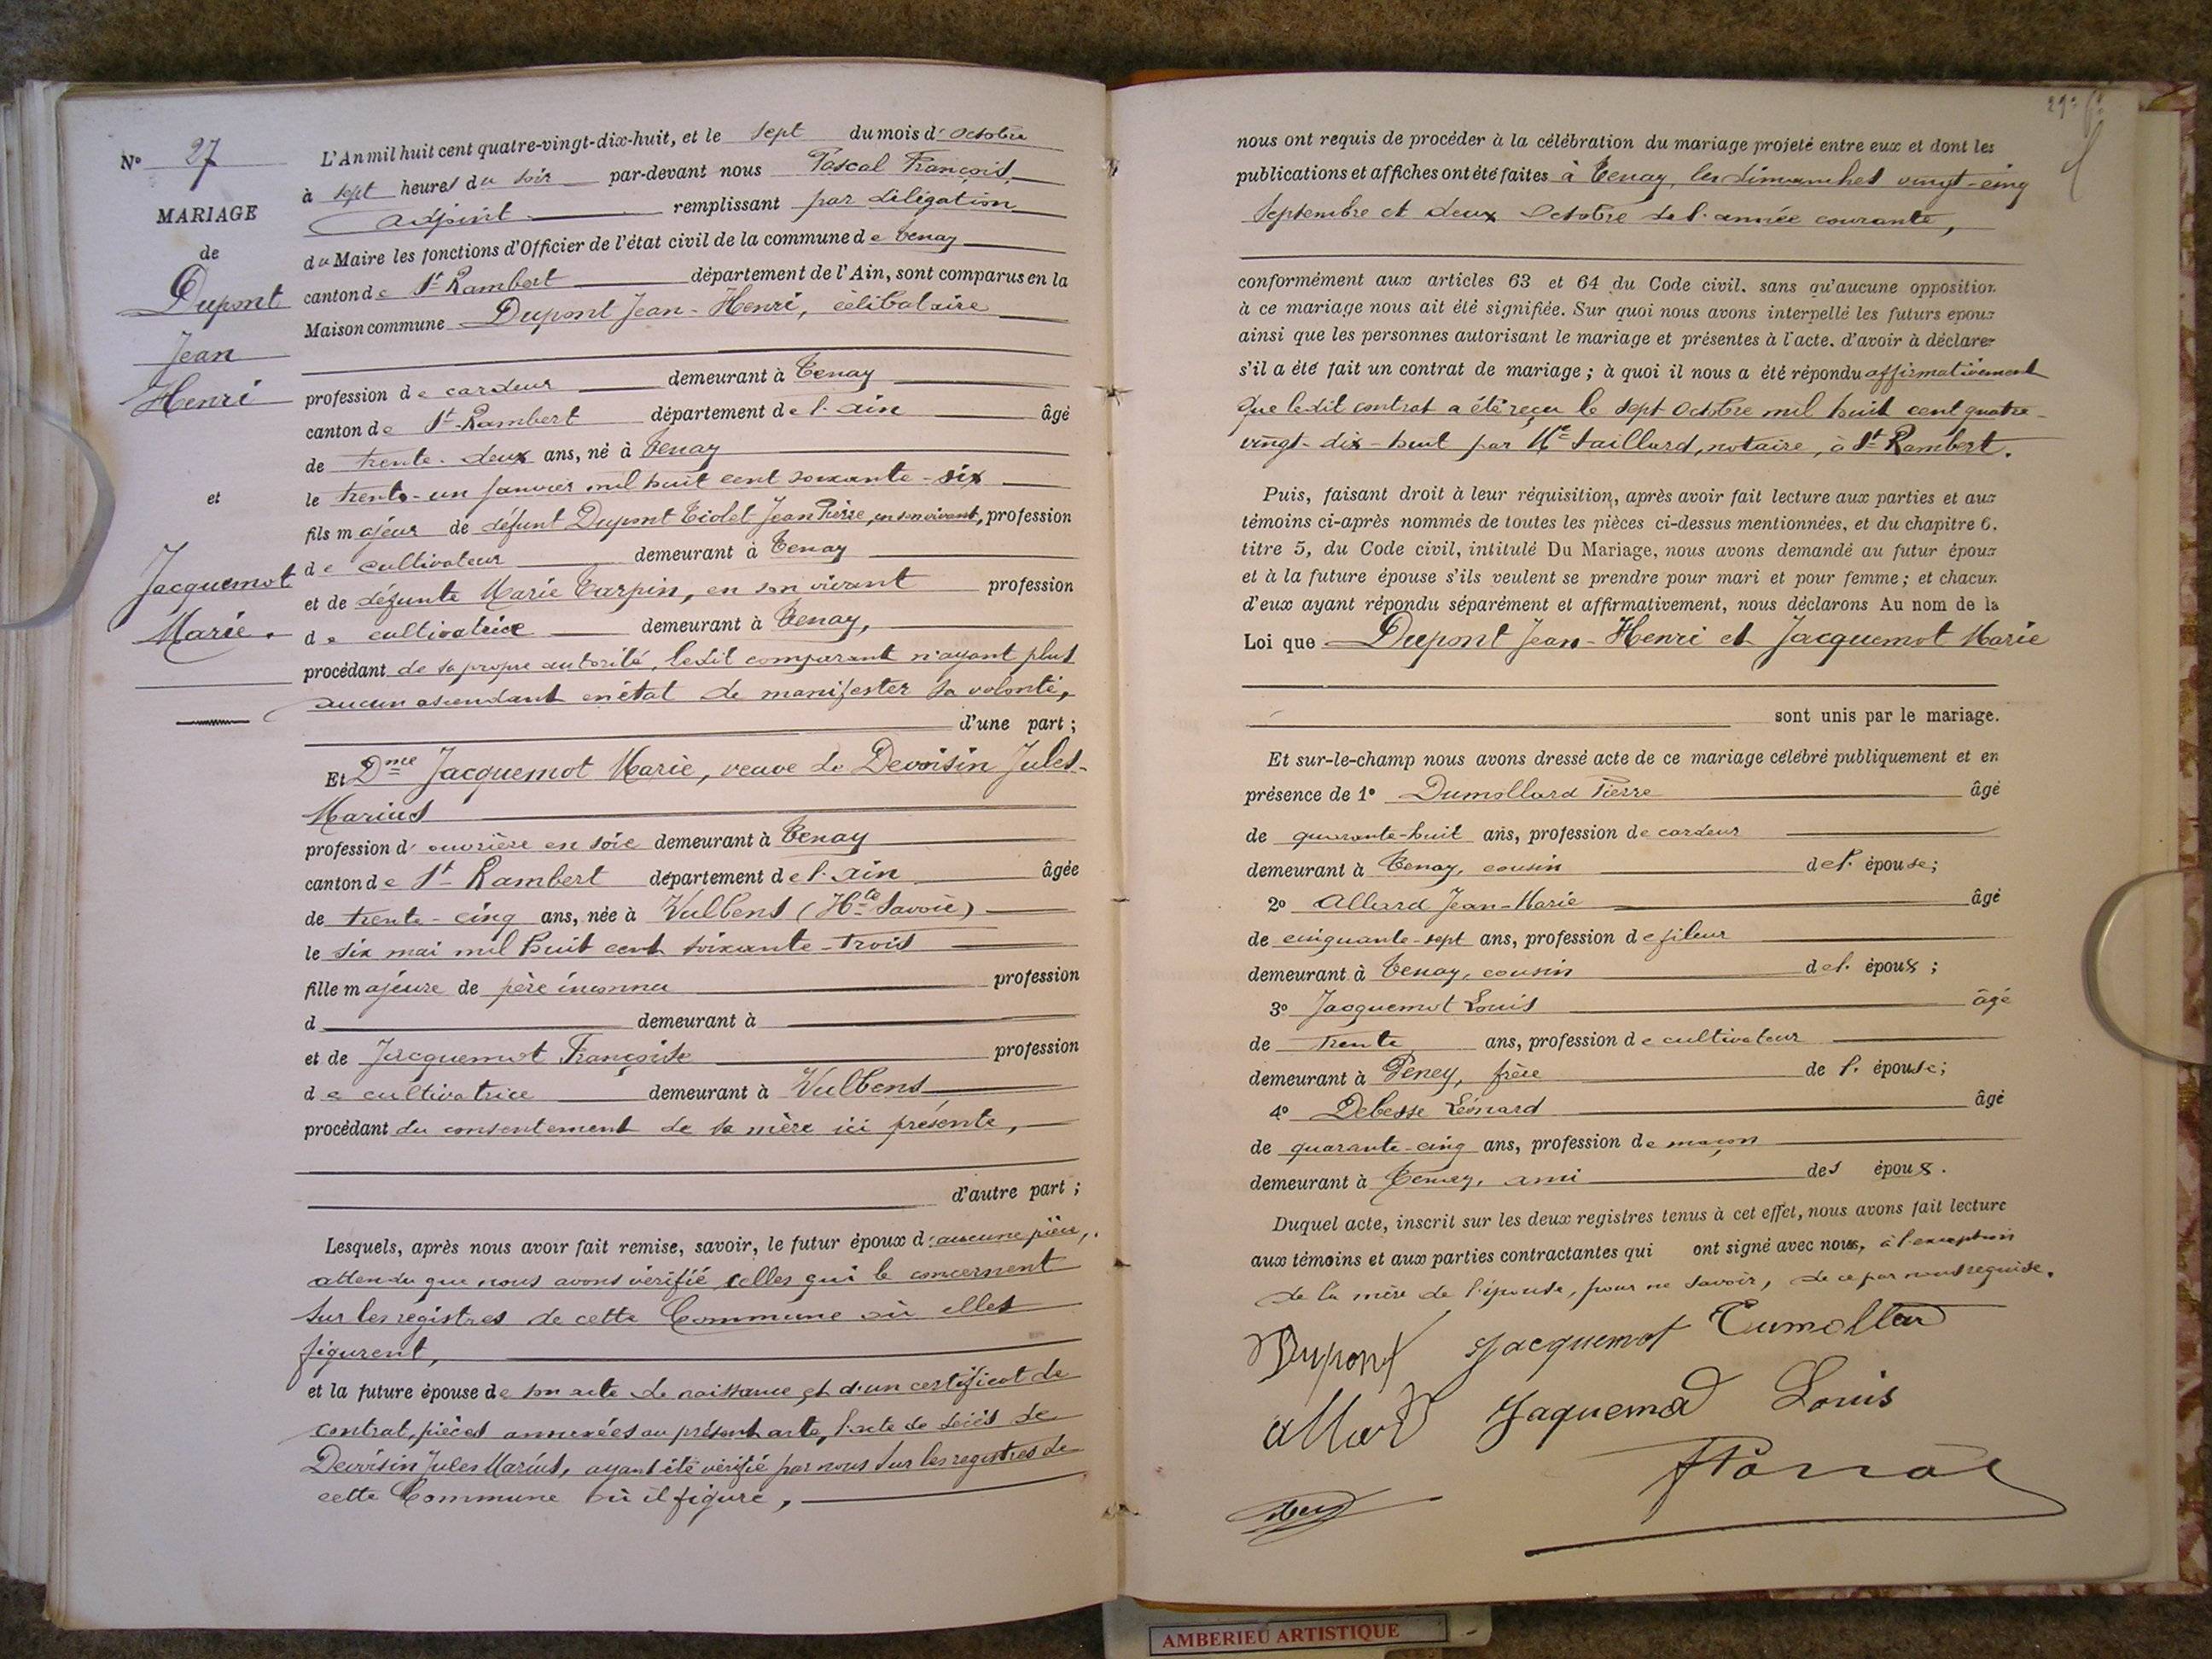 N° 27
MARIAGE
de
Dupont
Jean
Henri
et
Jacquemot
Marie.
L'An mil huit cent quatre-vingt-dix-huit, et le sept du mois d'Octobre
à sept heures du soir par-devant nous Pascal François,
adjoint remplissant par délégation
du Maire les fonctions d'Officier de l'état civil de la commune de Tenay
canton de St Rambert département de l'Ain, sont comparus en la
Maison commune Dupont Jean-Henri, célibataire
profession de cardeur demeurant à Tenay
canton de St-Rambert département de l'Ain âgé
de trente-deux ans, né à Tenay
le trente-un janvier mil huit cent soixante-six
fils majeur de défunt Dupont Tiolet Jean Pierre, en son vivant, profession
de cultivateur demeurant à Tenay
et de défunte Marie Tarpin, en son vivant profession
de cultivatrice demeurant à Tenay,
procédant de sa propre autorité, ledit comparant n'ayant plus
aucun ascendant en état de manifester sa volonté,
d'une part ;
Et Dme Jacquemot Marie, veuve de Devoisin Jules-
Marius
profession d'ouvrière en soie demeurant à Tenay
canton de St-Rambert département de l'Ain âgée
de trente-cinq ans, née à Vulbens (Hte Savoie)
le six mai mil huit cent soixante-trois
fille majeure de père inconnu profession
d demeurant à
et de Jacquemot Françoise profession
de cultivatrice demeurant à Vulbens
procédant du consentement de sa mère ici présente,
d'autre part ;
Lesquels, après nous avoir fait remise, savoir, le futur époux d'aucune pièce,
attendu que nous avons vérifié celles qui le concernent
sur les registres de cette Commune où elles
figurent,
et la future épouse de son acte de naissance et d'un certificat de
contrat, pièces annexées au présent acte, l'acte de décès de
Devoisin Jules Marius, ayant été vérifié par nous sur les registres de
cette Commune où il figure,
nous ont requis de procéder à la célébration du mariage projeté entre eux et dont les
publications et affiches ont été faites à Tenay, les dimanches vingt-cinq
Septembre et deux Octobre de l'année courante,
conformément aux articles 63 et 64 du Code civil. sans qu'aucune opposition
à ce mariage nous ait été signifiée. Sur quoi nous avons interpellé les futurs époux
ainsi que les personnes autorisant le mariage et présentes à l'acte. d'avoir à déclarer
s'il a été fait un contrat de mariage ; à quoi il nous a été répondu affirmativement
que ledit contrat a été reçu le sept Octobre mil huit cent quatre-
vingt-dix-huit par Me Taillard, notaire, à St-Rambert.
Puis, faisant droit à leur réquisition, après avoir fait lecture aux parties et aux
témoins ci-après nommés de toutes les pièces ci-dessus mentionnées, et du chapitre 6.
titre 5, du Code civil, intitulé Du Mariage, nous avons demandé au futur époux
et à la future épouse s'ils veulent se prendre pour mari et pour femme ; et chacun
d'eux ayant répondu séparément et affirmativement, nous déclarons Au nom de la
Loi que Dupont Jean-Henri et Jacquemot Marie
sont unis par le mariage.
Et sur-le-champ nous avons dressé acte de ce mariage célébré publiquement et en
présence de 1° Dumollard Pierre âgé
de quarante-huit ans, profession de cardeur
demeurant à Tenay, cousin de l'épouse ;
2° Allard Jean-Marie âgé
de cinquante-sept ans, profession de fileur
demeurant à Tenay, cousin de l'époux ;
3° Jacquemot Louis âgé
de trente ans, profession de cultivateur
demeurant à Peney, frère de l'épouse ;
4° Debesse Léonard âgé
de quarante-cinq ans, profession de maçon
demeurant à Tenay, ami des époux.
Duquel acte, inscrit sur les deux registres tenus à cet effet, nous avons fait lecture
aux témoins et aux parties contractantes qui ont signé avec nous, à l'exception
de la mère de l'épouse, pour ne savoir, de ce par nous requise.
Dupont Jacquemot Dumollard
Allard Jaquemod Louis
AMBERIEU ARTISTIQUE